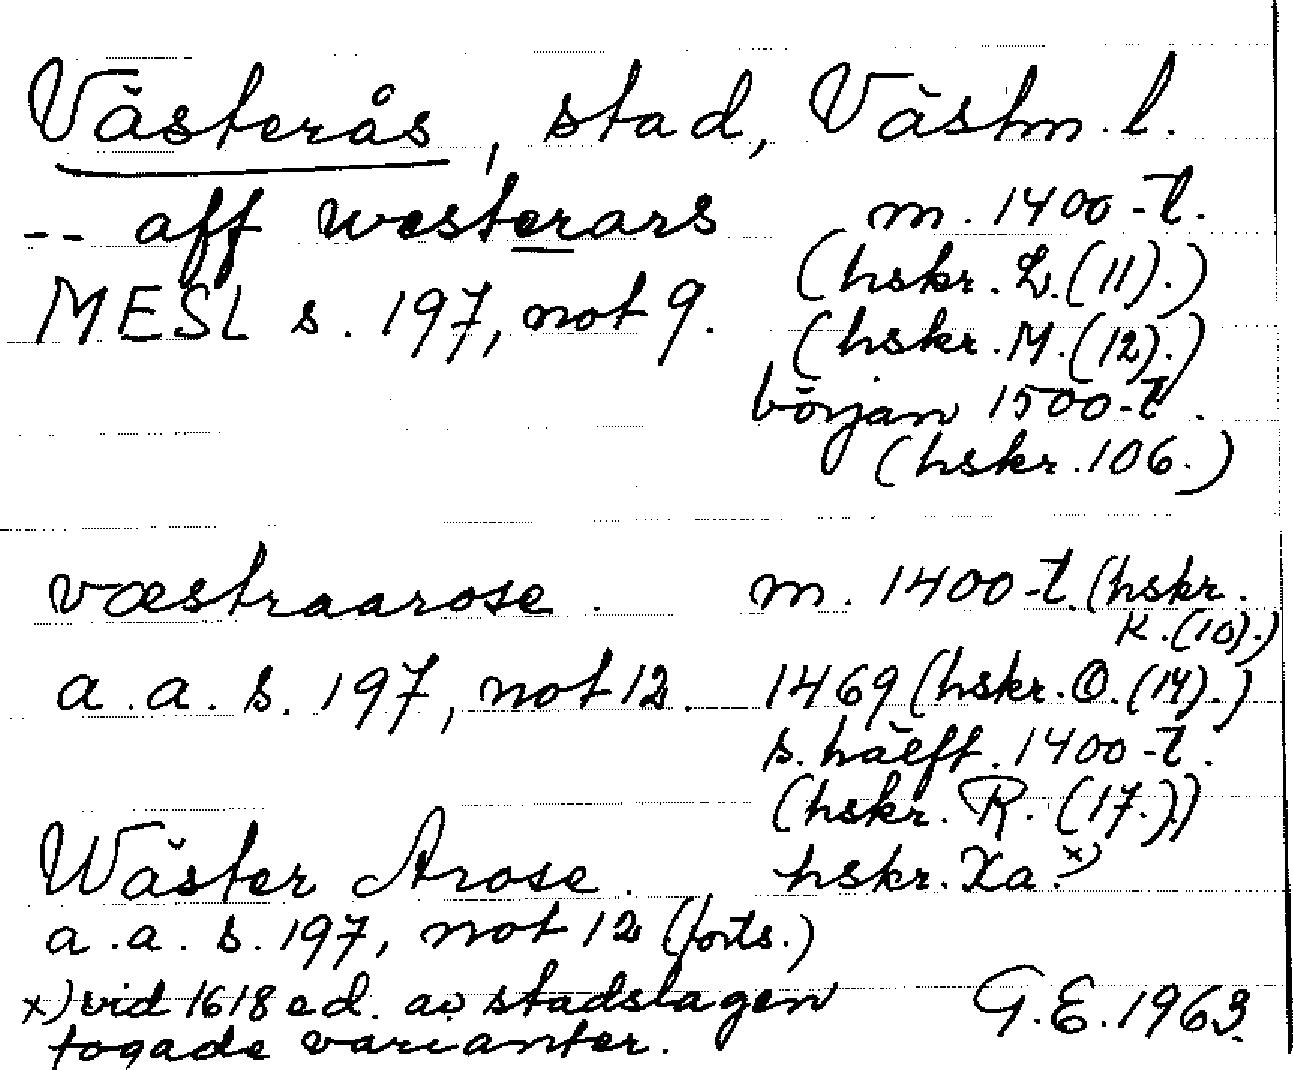 Västerås, stad, Västm. l.
-- aff westerars m. 1400-t.
(hskr. L. (11).)
MESL s. 197, not 9.
(hskr. M. (12).)
början 1500-t.
(hskr. 106.)
væstraarose. m. 1400-t. (hskr.
K. (10).)
a.a. s. 197, not 12. 1469 (hskr. O. (14).)
s. hälft. 1400-t.
(hskr. R. (17.))
Wäster Arose. hskr. Xa.x)
a.a. s. 197, not 12 (forts.)
x) vid 1618 ed. av stadslagen
fogade varianter. G.E. 1963.